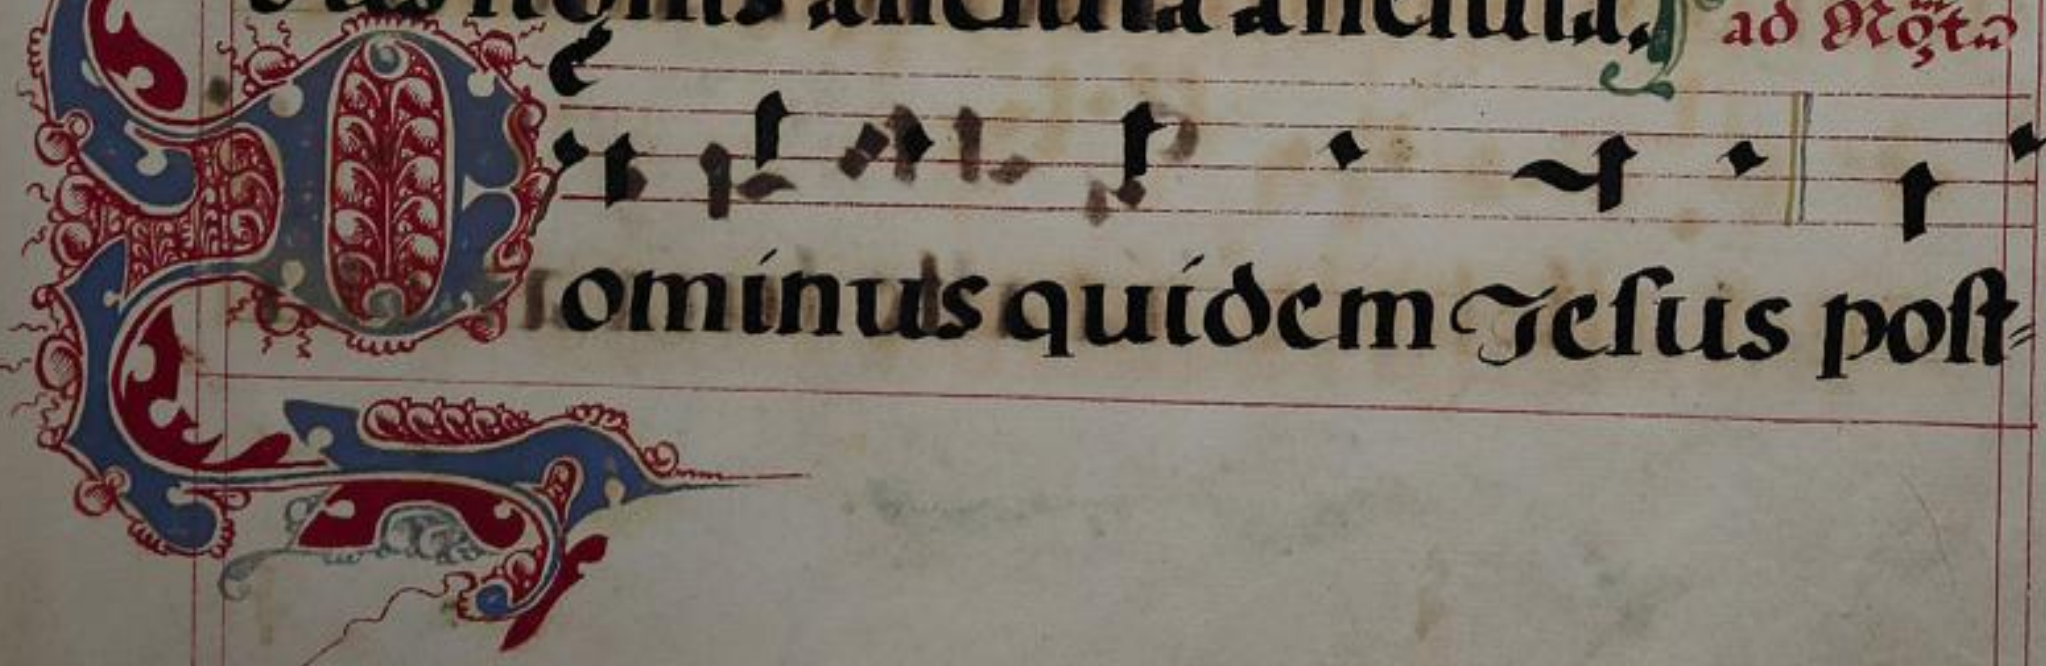 alleluia alleluia.
ad Mag̃tũ
Dominus quidem Jesus post=